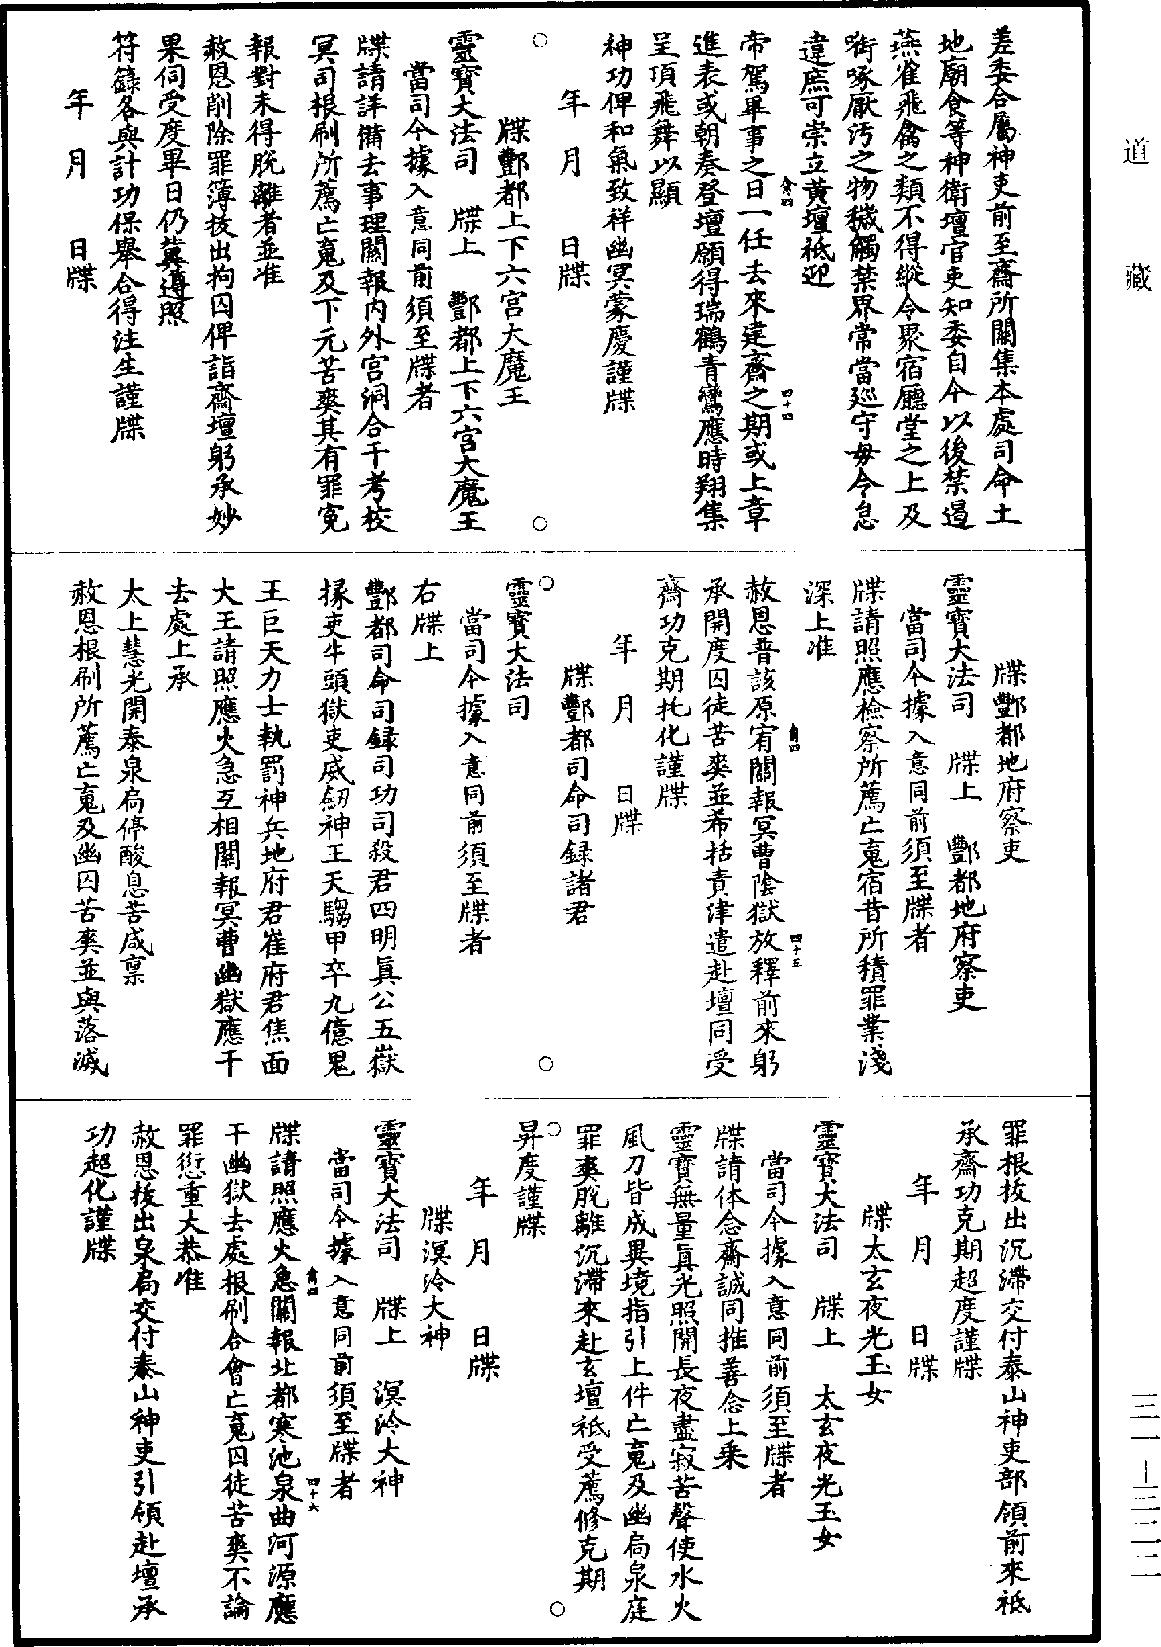 道藏
差委合屬神吏前至齋所關集本處司命土
地廟食等神衛壇官吏知委自今以後禁遏
燕雀飛禽之類不得縱令聚宿廳堂之上及
啣啄厭污之物穢觸禁界常當巡守毋令怠
違庶可崇立黃壇祇迎
帝駕畢事之日一任去來建齋之期或上章
進表或朝奏登壇願得瑞鶴青鸞應時翔集
呈項飛舞以顯
神功俾和氣致祥幽冥蒙慶謹牒
年月日牒
牒酆都上下六宮大魔王
靈寶大法司 牒上 酆都上下六宮大魔王
當司今據入意同前須至牒者
牒請詳備去事理關報內外宮洞合干考校
冥司根刷所薦亡䰟及下元苦爽其有罪寃
報對未得脫離者並准
赦恩削除罪簿拔出拘囚俾詣齋壇躬承妙
果伺受度畢日仍冀遵照
符籙各與計功保舉合得注生謹牒
年月日牒
牒酆都地府察吏
靈寶大法司 牒上 酆都地府察吏
當司今據入意同前須至牒者
牒請照應檢察所薦亡䰟宿昔所積罪業淺
深上准
赦恩普該原宥關報冥曹陰獄放釋前來躬
承開度囚徒苦爽並希括責津遣赴壇同受
齋功克期托化謹牒
年月日牒
牒酆都司命司録諸君
靈寶大法司
當司今據入意同前須至牒者
右牒上
酆都司命司録司功司殺君四明真公五嶽
掾吏牛頭獄吏威劒神王天騶甲卒九億鬼
王巨天力士執罰神兵地府君崔府君焦面
大王請照應火急互相關報冥曹幽獄應干
去處上承
太上慧光開泰泉扃停酸息苦咸稟
赦恩根刷所薦亡䰟及幽囚苦爽並與落滅
罪根拔出沉滯交付泰山神吏部領前來祗
承齋功克期超度謹牒
年月日牒
牒太玄夜光玉女
靈寶大法司 牒上 太玄夜光玉女
當司今據入意同前須至牒者
牒請体念齋誠同推善念上乘
靈寶無量真光照開長夜盡寂苦聲使水火
風刀皆成異境指引上件亡䰟及幽扃泉庭
罪爽脫離沉滯來赴玄壇祗受薦修克期
昇度謹牒
年月日牒
牒溟泠大神
靈寶大法司 牒上 溟泠大神
當司今據入意同前須至牒者
牒請照應火急關報北都寒池泉曲河源應
干幽獄去處根刷合會亡䰟囚徒苦爽不論
罪愆重大恭准
赦恩拔出泉扃交付泰山神吏引領赴壇承
功超化謹牒
三一—三二二